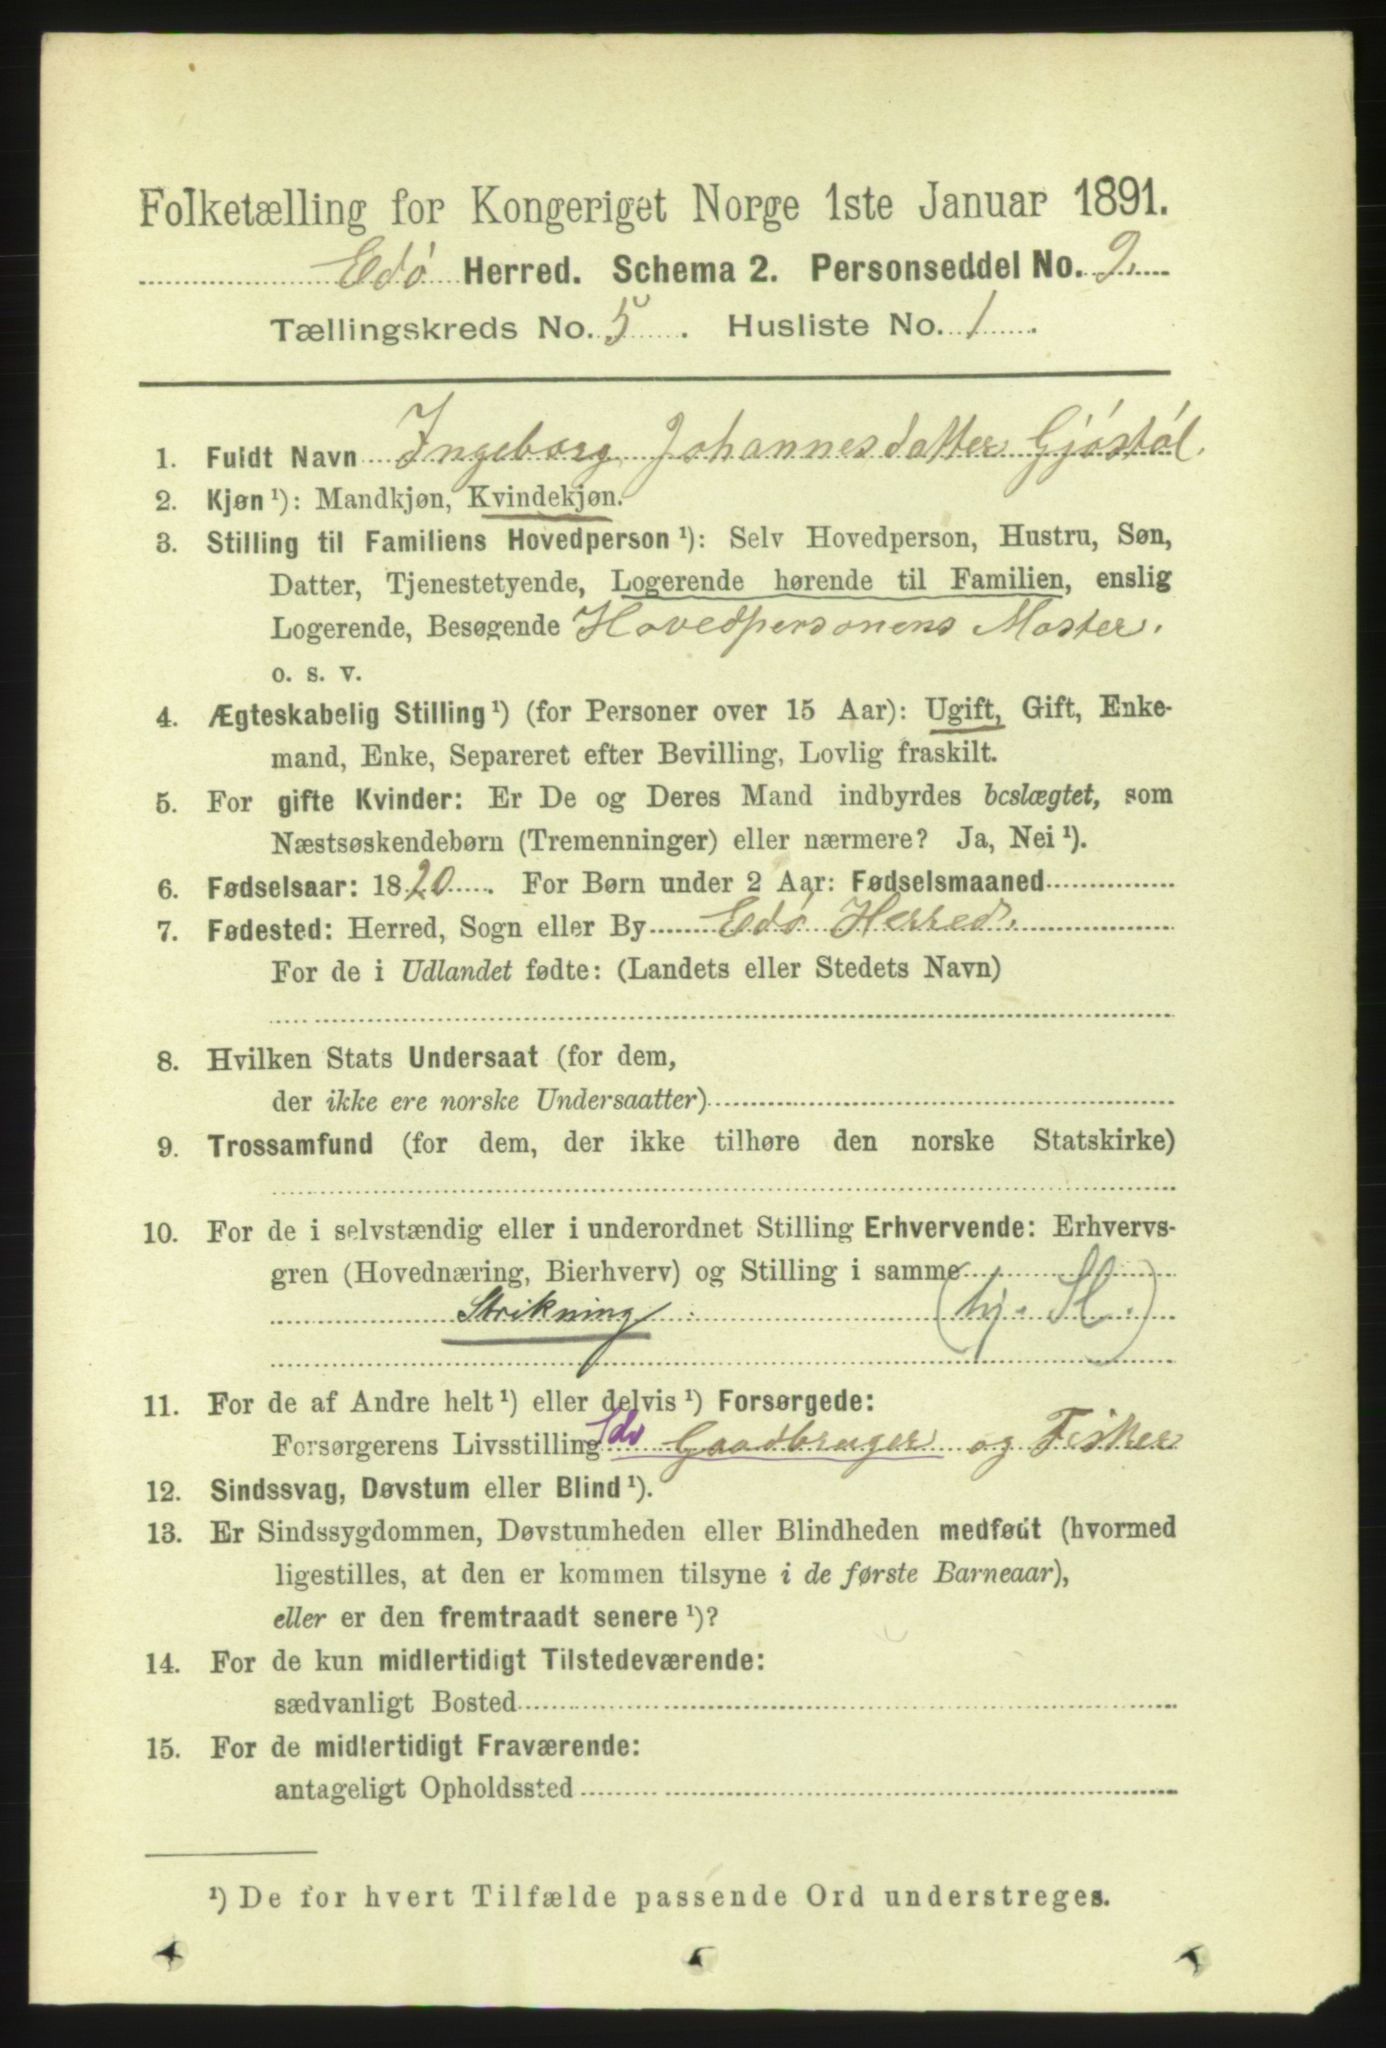 Folketælling for Kongeriget Norge 1ste Januar 1891.
Edø Herred. Schema 2. Personseddel No. 2.
Tællingskreds No. 5. Husliste No. 1.
1. Fuldt Navn Ingeborg Johannesdatter Gjøstøl.
2. Kjøn ¹): Mandkjøn, Kvindekjøn.
3. Stilling til Familiens Hovedperson ¹): Selv Hovedperson, Hustru, Søn,
Datter, Tjenestetyende, Logerende hørende til Familien, enslig
Logerende, Besøgende Hovedpersonens Moster.
o. s. v.
4. Ægteskabelig Stilling ¹) (for Personer over 15 Aar): Ugift, Gift, Enke-
mand, Enke, Separeret efter Bevilling, Lovlig fraskilt.
5. For gifte Kvinder: Er De og Deres Mand indbyrdes beslægtet, som
Næstsøskendebørn (Tremenninger) eller nærmere? Ja, Nei ¹).
6. Fødselsaar: 1820. For Børn under 2 Aar: Fødselsmaaned
7. Fødested: Herred, Sogn eller By Edø Herred.
For de i Udlandet fødte: (Landets eller Stedets Navn)
8. Hvilken Stats Undersaat (for dem,
der ikke ere norske Undersaatter)
9. Trossamfund (for dem, der ikke tilhøre den norske Statskirke)
10. For de i selvstændig eller i underordnet Stilling Erhvervende: Erhvervs-
gren (Hovednæring, Bierhverv) og Stilling i samme
Strikning (hj. St.)
11. For de af Andre helt ¹) eller delvis ¹) Forsørgede:
Forsørgerens Livsstilling Gaadbruger og Fisker
12. Sindssvag, Døvstum eller Blind ¹).
13. Er Sindssygdommen, Døvstumheden eller Blindheden medfødt (hvormed
ligestilles, at den er kommen tilsyne i de første Barneaar),
eller er den fremtraadt senere ¹)?
14. For de kun midlertidigt Tilstedeværende:
sædvanligt Bosted
15. For de midlertidigt Fraværende:
antageligt Opholdssted
¹) De for hvert Tilfælde passende Ord understreges.